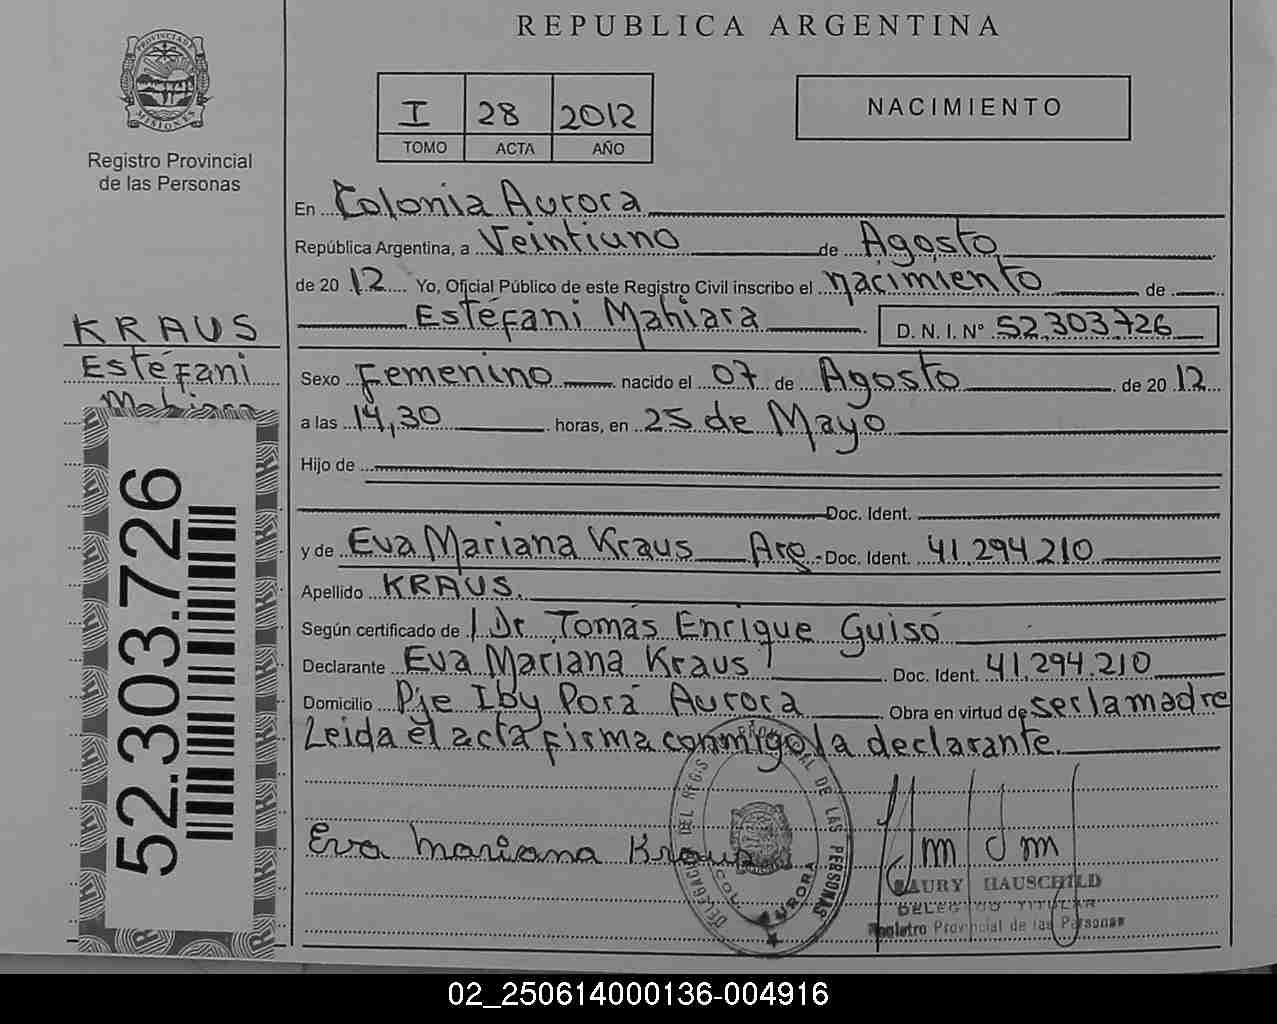 REPUBLICA ARGENTINA
PROVINCIA DE MISIONES
Registro Provincial
de las Personas
I 28 2012
TOMO ACTA AÑO
NACIMIENTO
En Colonia Aurora
República Argentina, a Veintiuno de Agosto
de 2012 Yo, Oficial Público de este Registro Civil inscribo el nacimiento de
Estéfani Mahiara D. N. I. N° 52.303.726
KRAUS
Estéfani
Mahiara
Sexo Femenino nacido el 07 de Agosto de 2012
a las 14,30 horas, en 25 de Mayo
Hijo de
Doc. Ident.
y de Eva Mariana Kraus Arg.- Doc. Ident. 41.294.210
Apellido KRAUS.
Según certificado de Dr Tomás Enrique Guisó
Declarante Eva Mariana Kraus Doc. Ident. 41.294.210
Domicilio Pje Iby Porá Aurora Obra en virtud de ser la madre
Leida el acta firma conmigo la declarante.
52.303.726
Eva Mariana Kraus
DELEGACION DEL REGISTRO PROVINCIAL DE LAS PERSONAS
COL. AURORA
HAUSCHILD
DELEGADO TITULAR
Registro Provincial de las Personas
02_250614000136-004916